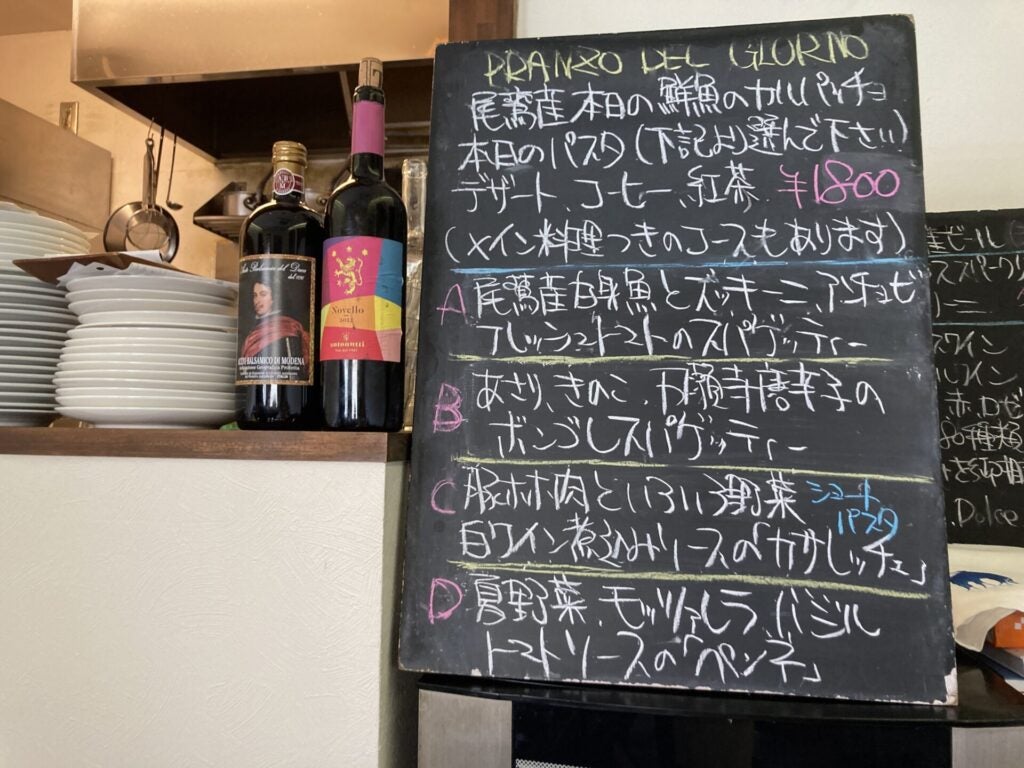 PRANZO DEL GIORNO
尾鷲産本日の鮮魚のカルパッチョ
本日のパスタ(下記より選んで下さい)
デザート、コーヒー、紅茶 ¥1800
(メイン料理つきのコースもあります)
A 尾鷲産白身魚とズッキーニ、アンチョビ
フレッシュトマトのスパゲッティー
B あさり、きのこ、万願寺唐辛子の
ボンゴレスパゲッティー
C 豚ホホ肉といろいろ野菜 ショート
パスタ
白ワイン煮込みソースの「カサレッチェ」
D 夏野菜、モッツァレラ、バジル
トマトソースの「ペンネ」
ACETO BALSAMICO DI MODENA
Novello
2022
antonutti
産ビール
スパークリ
ワイン
赤、ロゼ
種類
Dolce